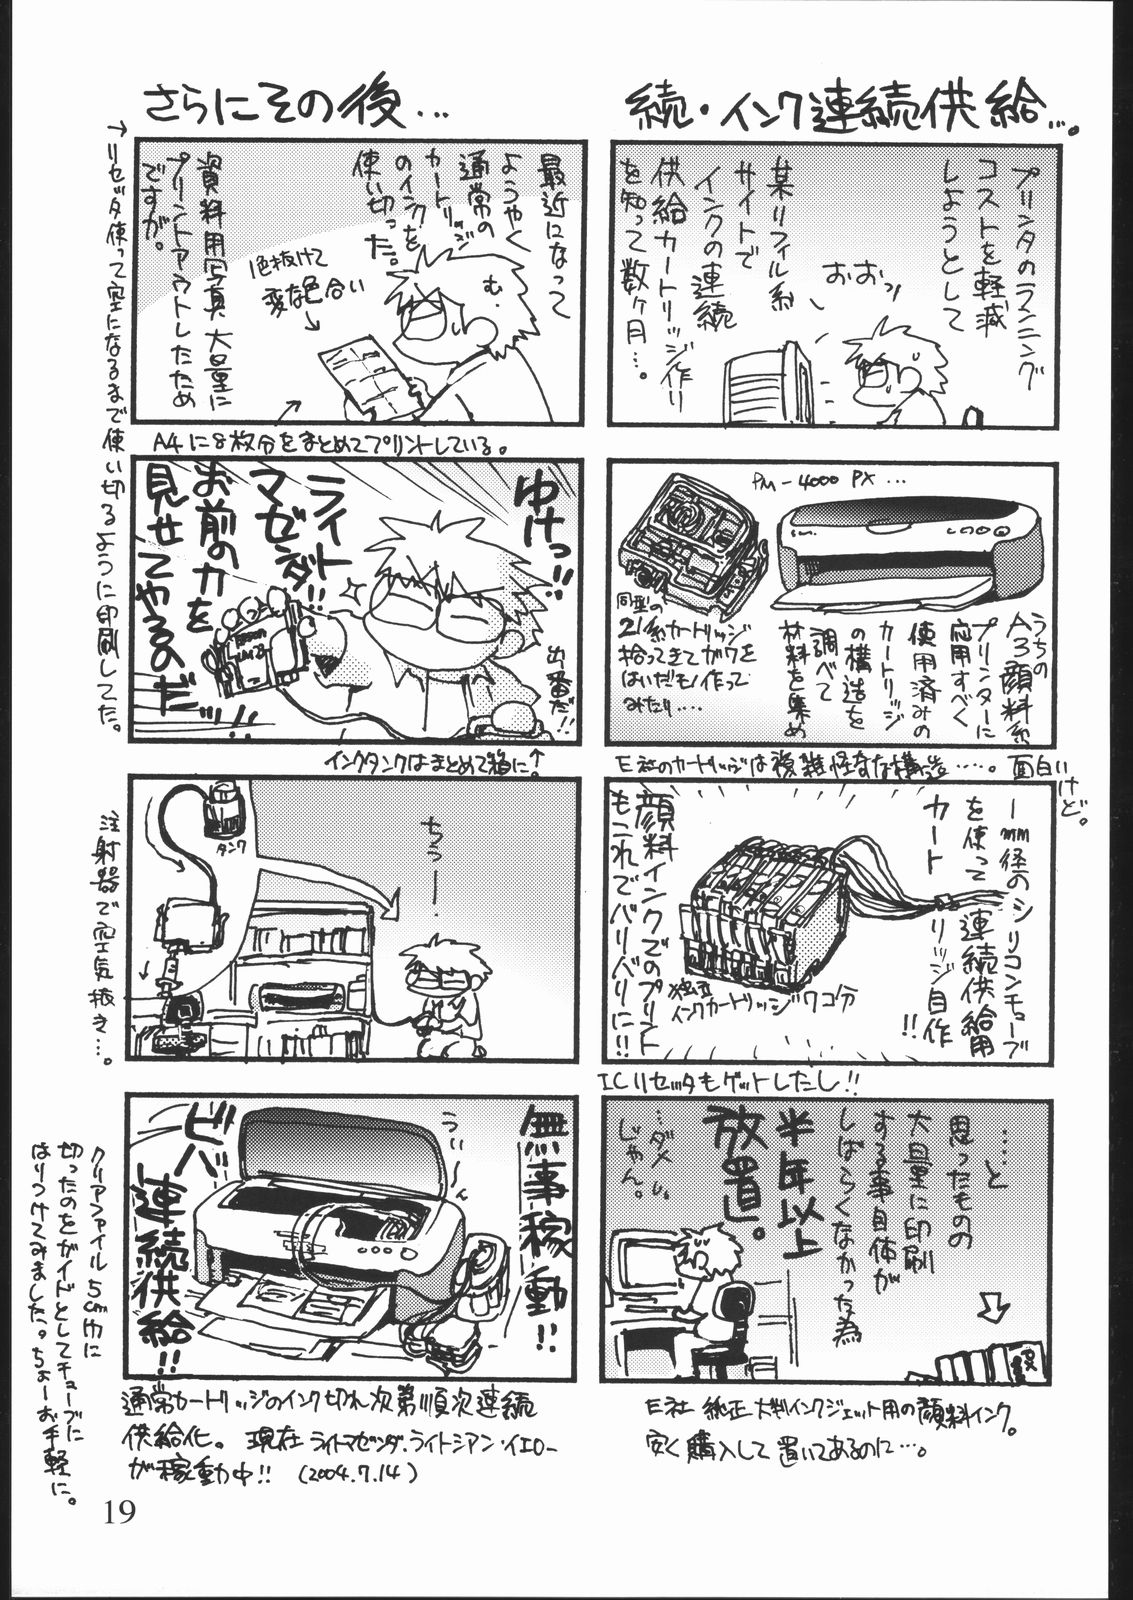 続・インク連続供給…。
プリンタのランニング
コストを軽減
しようとして
某リフィル系
サイトで
インクの連続
供給カートリッジ作り
を知って数ヶ月…。
おおっ
PM-4000PX…
うちの
A3顔料系
プリンターに
応用すべく
使用済みの
カートリッジ
の構造を
調べて
材料を集め
同型の
21系カートリッジ
拾ってきてガワを
はいだもの作って
みたり…
E社のカードリッジは複雑怪奇な構造……。面白いけど。
1mm径のシリコンチューブ
を使って連続供給用
カートリッジ自作!!
顔料インクでのプリント
もこれでバリバリに!!
独立
インクカートリッジ7コ分
ICリセッタもゲットしたし!!
……と
思ったものの
大量に印刷
する事自体が
しばらくなかった為
半年以上
放置。
…ダメ
じゃん。
E社純正大判インクジェット用の顔料インク。
安く購入して置いてあるのに…。
さらにその後…
最近になって
ようやく
通常の
カートリッジ
のインクを
使い切った。
む。
1色抜けて
変な色合い
資料用写真大量に
プリントアウトしたため
ですが。
→リセッタ使って空になるまで使い切るように印刷してた。
A4に8枚分をまとめてプリントしている。
ゆけっ!!
ライト
マゼンダ!!
お前の力を
見せてやるのだ
出番だ!!
インクタンクはまとめて箱に。↑
タンク
ちうー.
注射器で空気抜き…。
無事稼動!!
うい〜ん
ビバ
連続供給!!
通常カートリッジのインク切れ次第順次連続
供給化。現在ライトマゼンダ・ライトシアン・イエロー
が稼動中!!(2004.7.14)
クリアファイル5cm巾に
切ったのをガイドとしてチューブに
はりつけてみました。ちょーお手軽に。
19